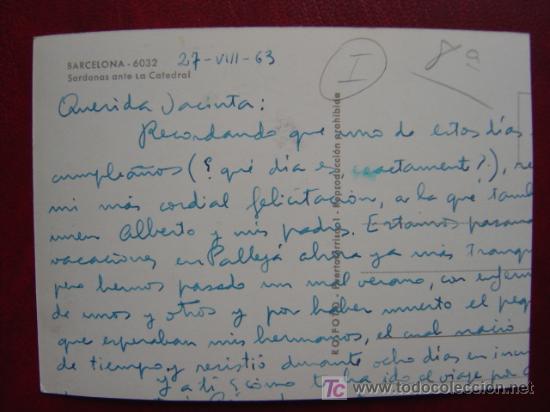 BARCELONA - 6032
Sardanas ante La Catedral
27-VIII-63
I
Querida Jacinta:
Recordando que uno de estos días
cumpleaños (¿ qué día es exactament?), re
mi más cordial felicitación, a la que tamb
unen Alberto y mis padres. Estamos pasand
vacaciones en Pallejá ahora ya más tranqu
pero hemos pasado un mal verano, con enferm
de unos y otros y por haber muerto el peq
que esperaban mis hermanos, el cual nació
de tiempo y resistió durante ocho días en incu
Y a ti ¿cómo te ha ido el viaje por
Reproducción prohibida
todocoleccion.net